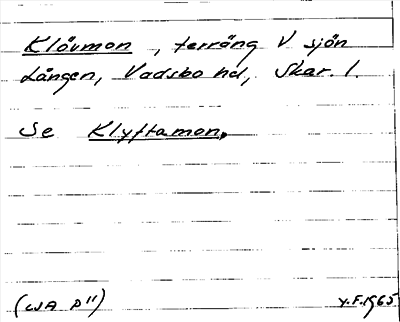 Klåvmon, terräng V sjön
Lången, Vadsbo hd, Skar. l.
Se Klyftamon.
(WA P")
Y.F. 1965